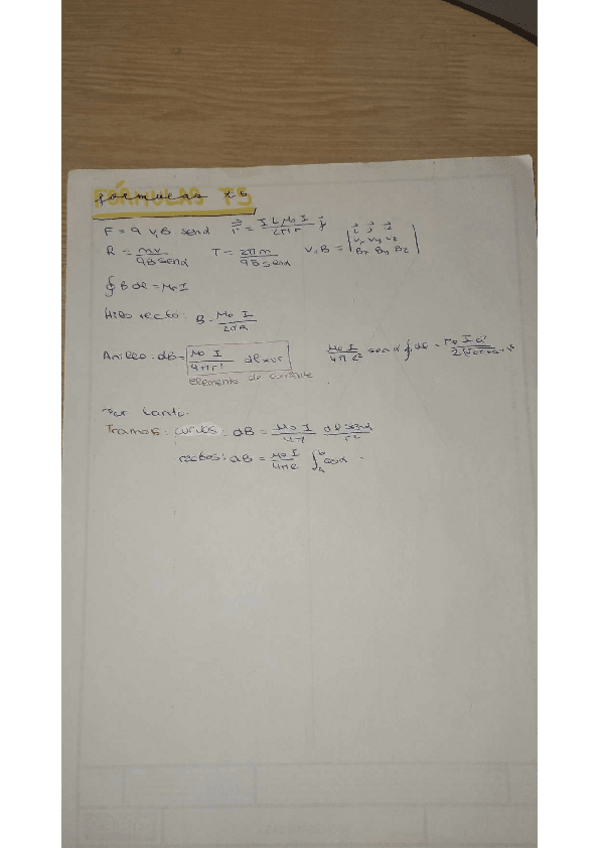 FÓRMULAS T5
F = q v,B senα   F⃗ = I L μ₀ I / 2πr j⃗
R = mv / qBsenα   T = 2πm / qBsenα   v,B = | i⃗ j⃗ z⃗ / Vx Vy Vz / Bx By Bz |
∮ B dl = μ₀ I
Hilo recto: B = μ₀ I / 2πa
Anillo: dB = μ₀ I / 4πr² dl × ur   μ₀ I / 4πr² sen α ∮ dl =
elemento de corriente
Por tanto.
Tramos: curvos: dB = μ₀ I / 4π dl senα / r²
rectos: dB = μ₀ I / 4πa ∫ᵃᵇ cosα